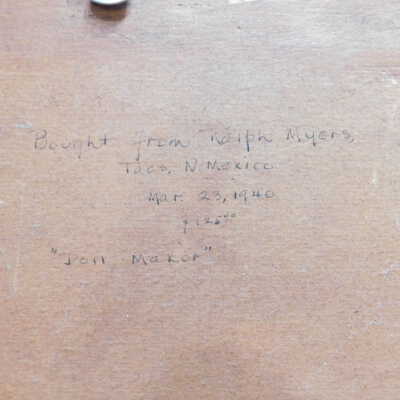 Bought from Ralph Myers,
Taos, N. Mexico
Mar. 23, 1940
$125⁰⁰
Maker"